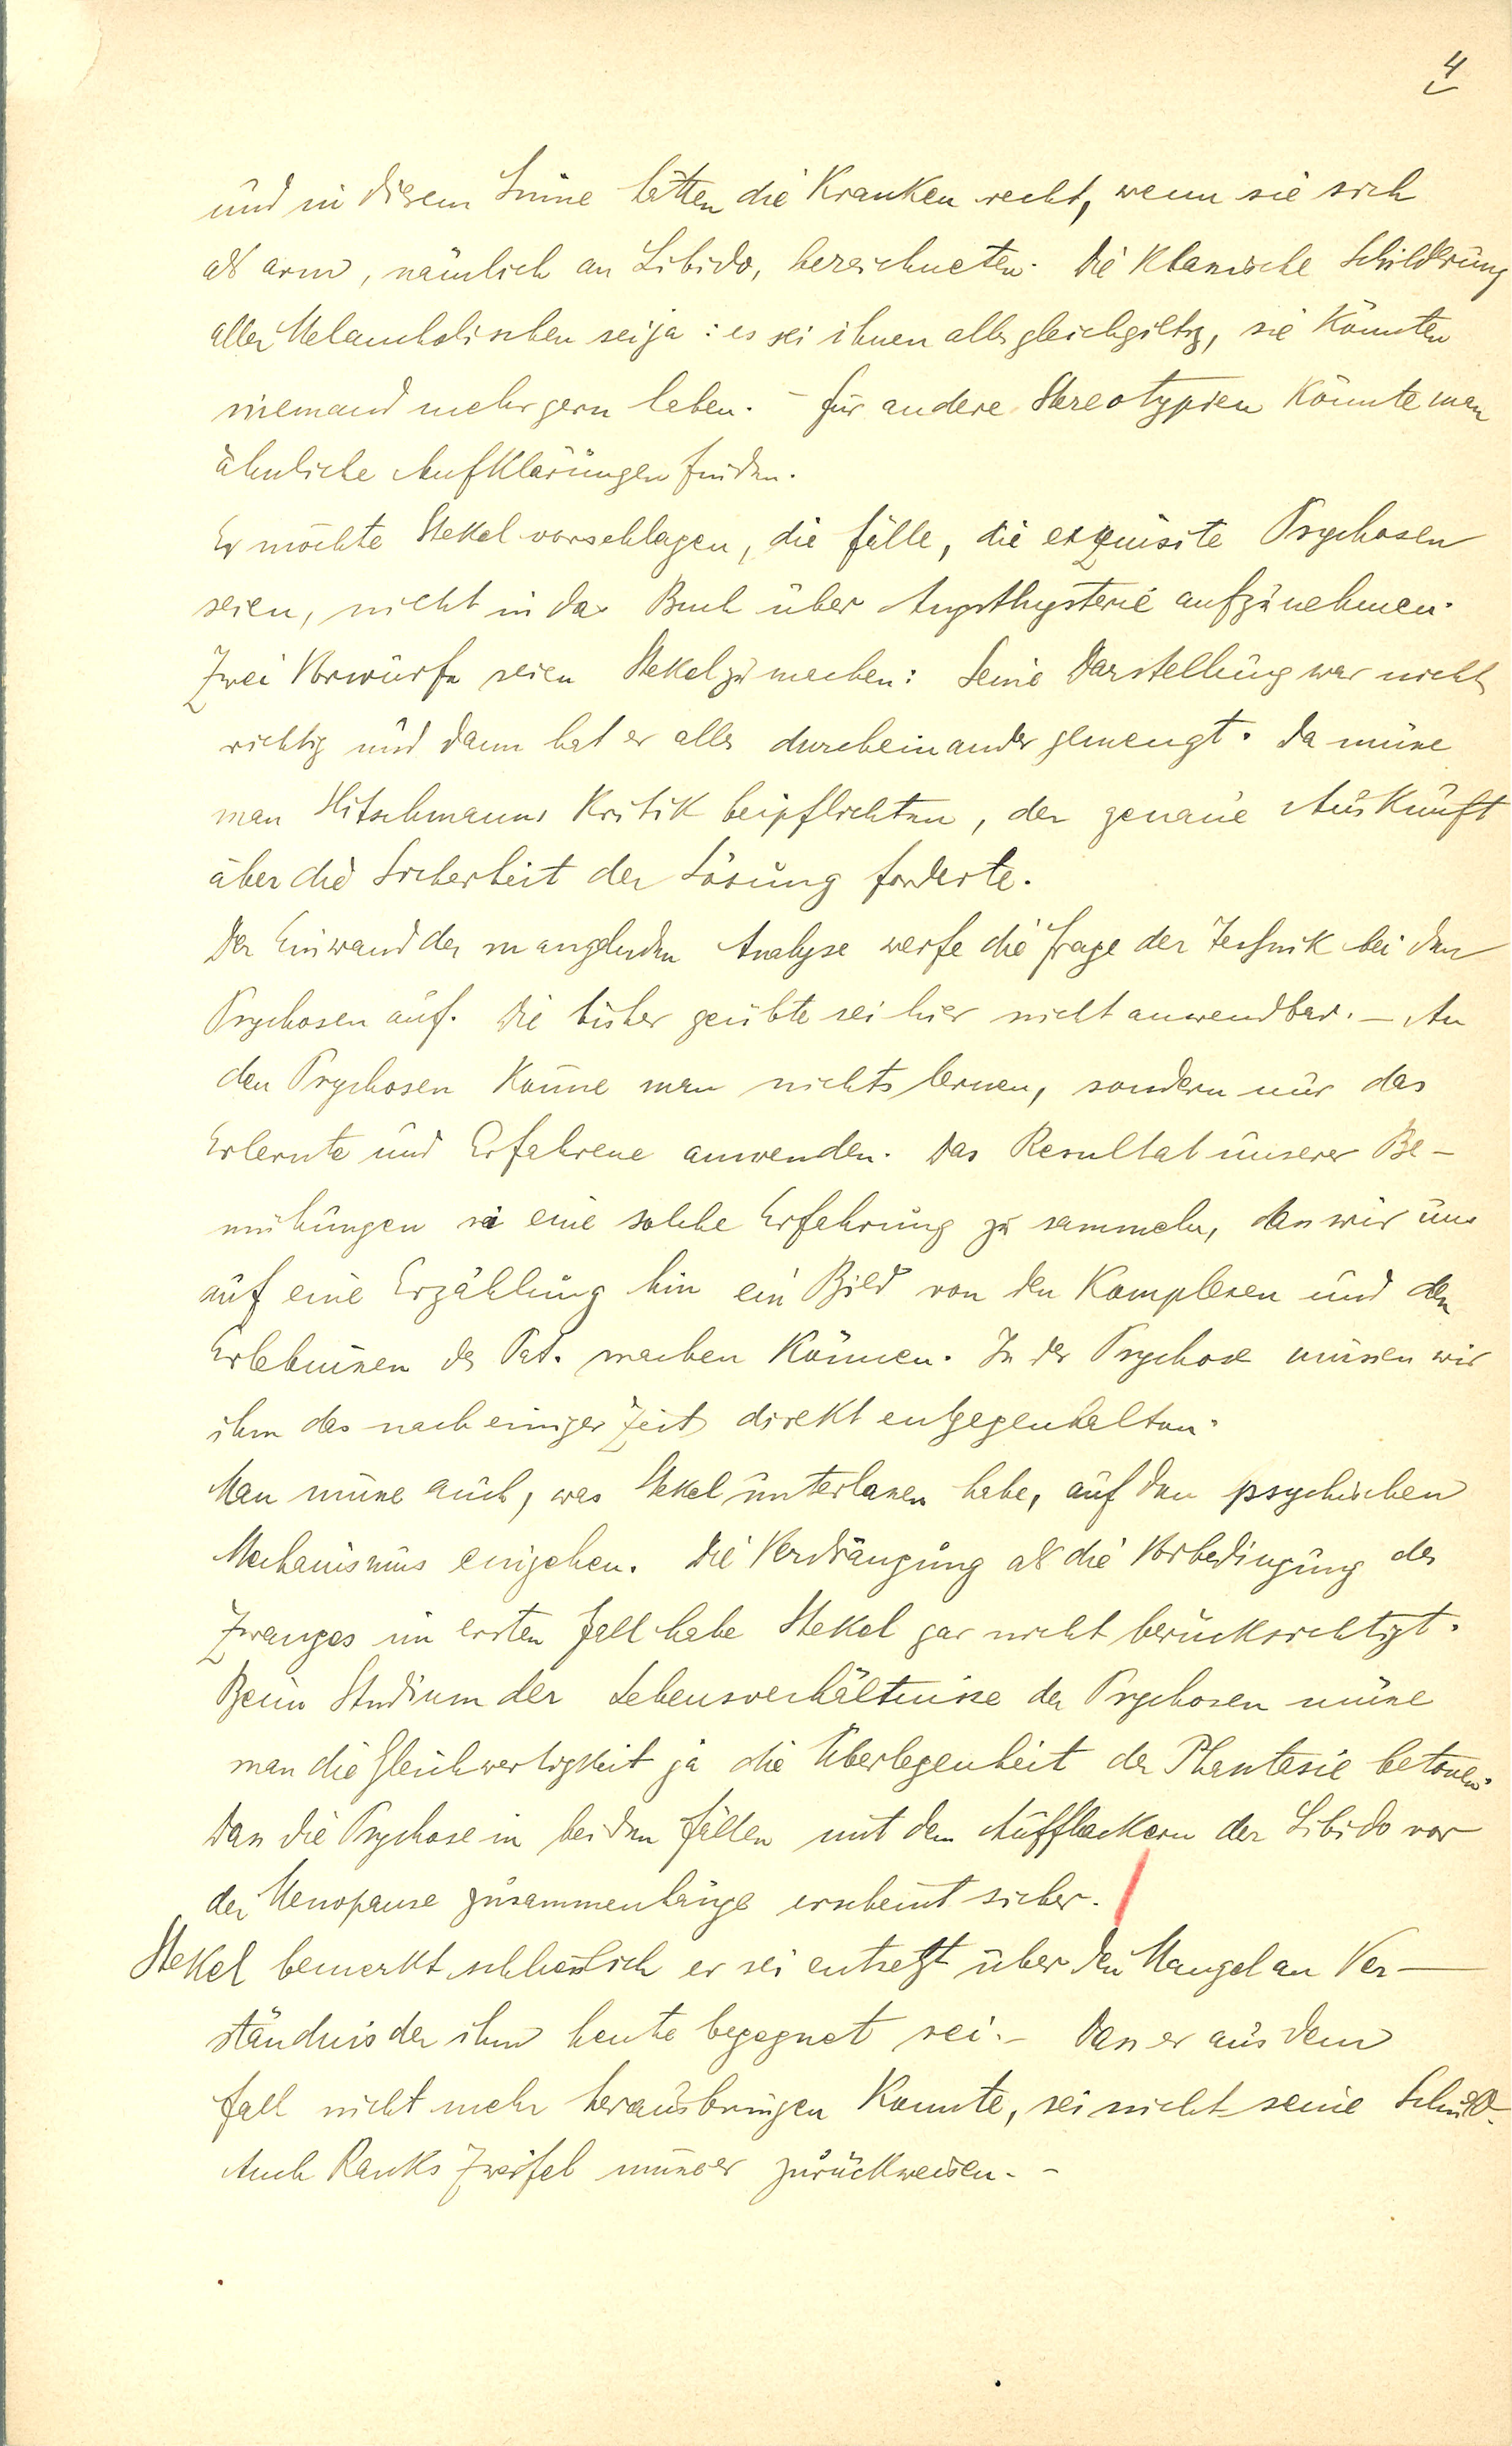 4
und in diesem Sinne hätten die Kranken recht, wenn sie sich
als arm, nämlich an Libido, bezeichneten. Die klassische Schilderung
aller Melancholischen sei ja: es sei ihnen alles gleichgiltig, sie könnten
niemand mehr gern haben. – Für andere Stereotypien könnte man
ähnliche Aufklärungen finden.
Er möchte Stekel vorschlagen, die Fälle, die exquisite Psychosen
seien, nicht in das Buch über Angsthysterie aufzunehmen.
Zwei Vorwürfe seien Stekel zu machen: Seine Darstellung war nicht
richtig und dann hat er alles durcheinander gemengt. Da müsse
man Hitschmanns Kritik beipflichten, der genaue Auskunft
über die Sicherheit der Lösung forderte.
Der Einwand der mangelnden Analyse werfe die Frage der Technik bei den
Psychosen auf. Die bisher geübte sei hier nicht anwendbar. – An
den Psychosen könne man nichts lernen, sondern nur das
Erlernte und Erfahrene anwenden. Das Resultat unserer Be-
mühungen sei eine solche Erfahrung zu sammeln, dass wir uns
auf eine Erzählung hin ein Bild von den Komplexen und den
Erlebnissen des Pat. machen können. In der Psychose müssen wir
ihm das nach einiger Zeit direkt entgegenhalten.
Man müsse auch, was Stekel unterlassen habe, auf den psychischen
Mechanismus eingehen. Die Verdrängung als die Vorbedingung des
Zwanges im ersten Fall habe Stekel gar nicht berücksichtigt.
Beim Studium der Lebensverhältnisse der Psychosen müsse
man die Gleichwertigkeit ja die Überlegenheit der Phantasie betonen.
Dass die Psychose in beiden Fällen mit dem Aufflackern der Libido vor
der Menopause zusammenhänge erscheint sicher.
Stekel bemerkt schliesslich er sei entsetzt über den Mangel an Ver-
ständnis der ihm heute begegnet sei. – Dass er aus dem
Fall nicht mehr herausbringen konnte, sei nicht seine Schuld.
Auch Ranks Zweifel müsse er zurückweisen. –